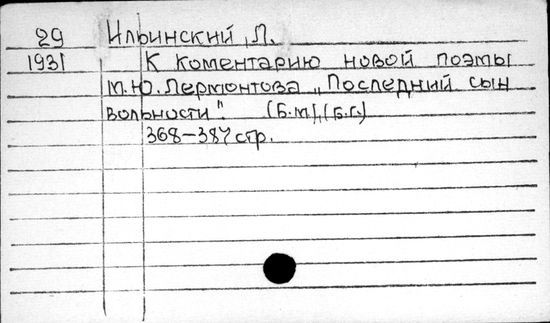 29 Ильинский, Л.
1931 К коментарию новой поэмы
М.Ю. Лермонтова „Последний сын
вольности". (Б.м), (Б.г.)
368-387 стр.